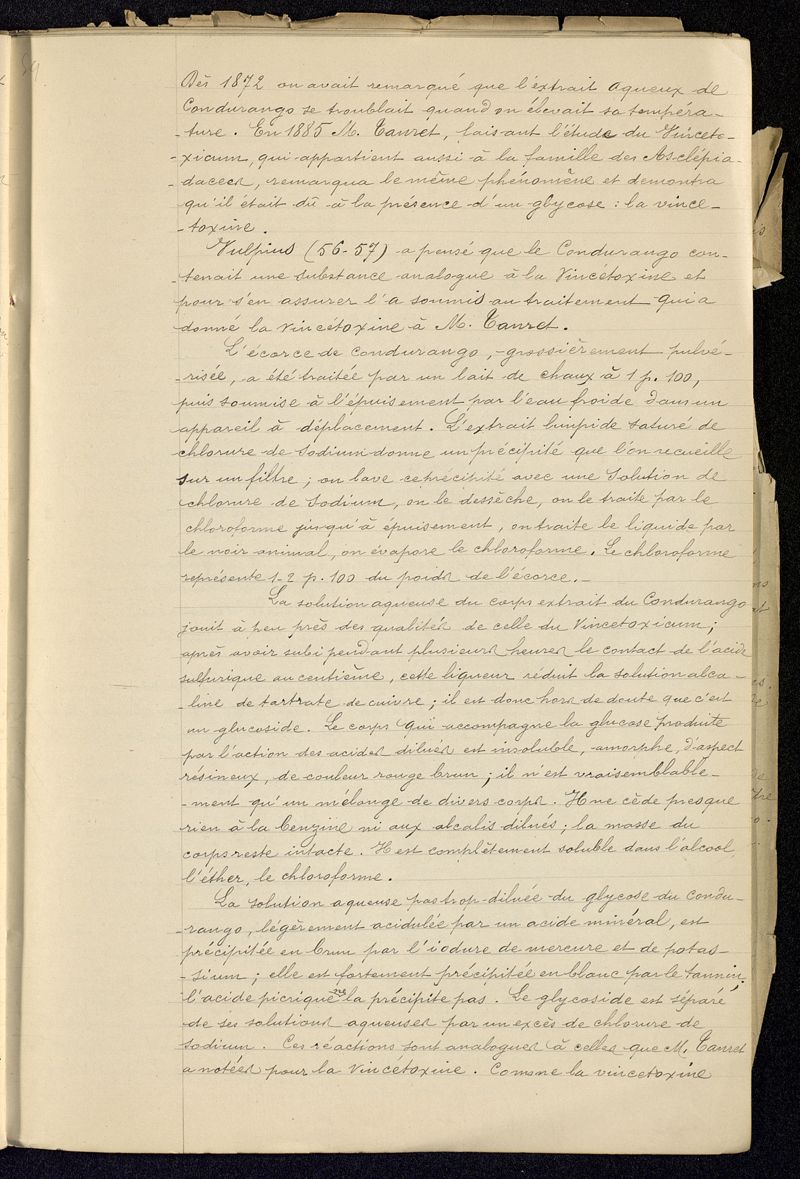 59
Dès 1872 on avait remarqué que l'extrait aqueux de
Condurango se troublait quand on élevait sa tempéra-
-ture. En 1885 M. Tanret, faisant l'étude du Vinceto-
-xicum, qui appartient aussi à la famille des Asclépia-
-dacees, remarqua le même phénomène et demontra
qu'il était dû à la présence d'un glycose : la vince-
-toxine.
Vulpius (56-57) a pensé que le Condurango con-
-tenait une substance analogue à la Vincetoxine et
pour s'en assurer l'a soumis au traitement qui a
donné la vincétoxine à M. Tanret.
L'écorce de Condurango, grossièrement pulvé-
-risée, a été traitée par un lait de chaux à 1 p. 100,
puis soumise à l'épuisement par l'eau froide dans un
appareil à déplacement. L'extrait limpide saturé de
chlorure de sodium donne un précipité que l'on recueille
sur un filtre ; on lave ce précipité avec une solution de
chlorure de sodium, on le dessèche, on le traite par le
chloroforme jusqu'à épuisement, on traite le liquide par
le noir animal, on évapore le chloroforme. Le chloroforme
représente 1-2 p. 100 du poids de l'écorce.-
La solution aqueuse du corps extrait du Condurango
jouit à peu près des qualités de celle du Vincetoxicum ;
après avoir subi pendant plusieurs heures le contact de l'acide
sulfurique au centième, cette liqueur réduit la solution alca-
-line de tartrate de cuivre ; il est donc hors de doute que c'est
un glucoside. Le corps qui accompagne la glucose produite
par l'action des acides dilués est insoluble, amorphe, d'aspect
résineux, de couleur rouge brun ; il n'est vraisemblable-
-ment qu'un mélange de divers corps. Il ne cède presque
rien à la benzine ni aux alcalis dilués ; la masse du
corps reste intacte. Il est complètement soluble dans l'alcool,
l'éther, le chloroforme.
La solution aqueuse pas trop diluée du glycose du Condu-
-rango, légèrement acidulée par un acide minéral, est
précipitée en brun par l'iodure de mercure et de potas-
-sium ; elle est fortement précipitée en blanc par le tannin,
l'acide picrique ne la précipite pas. Le glycoside est séparé
de ses solutions aqueuses par un excès de chlorure de
sodium. Ces réactions sont analogues à celles que M. Tanret
a notées pour la Vincétoxine. Comme la vincetoxine